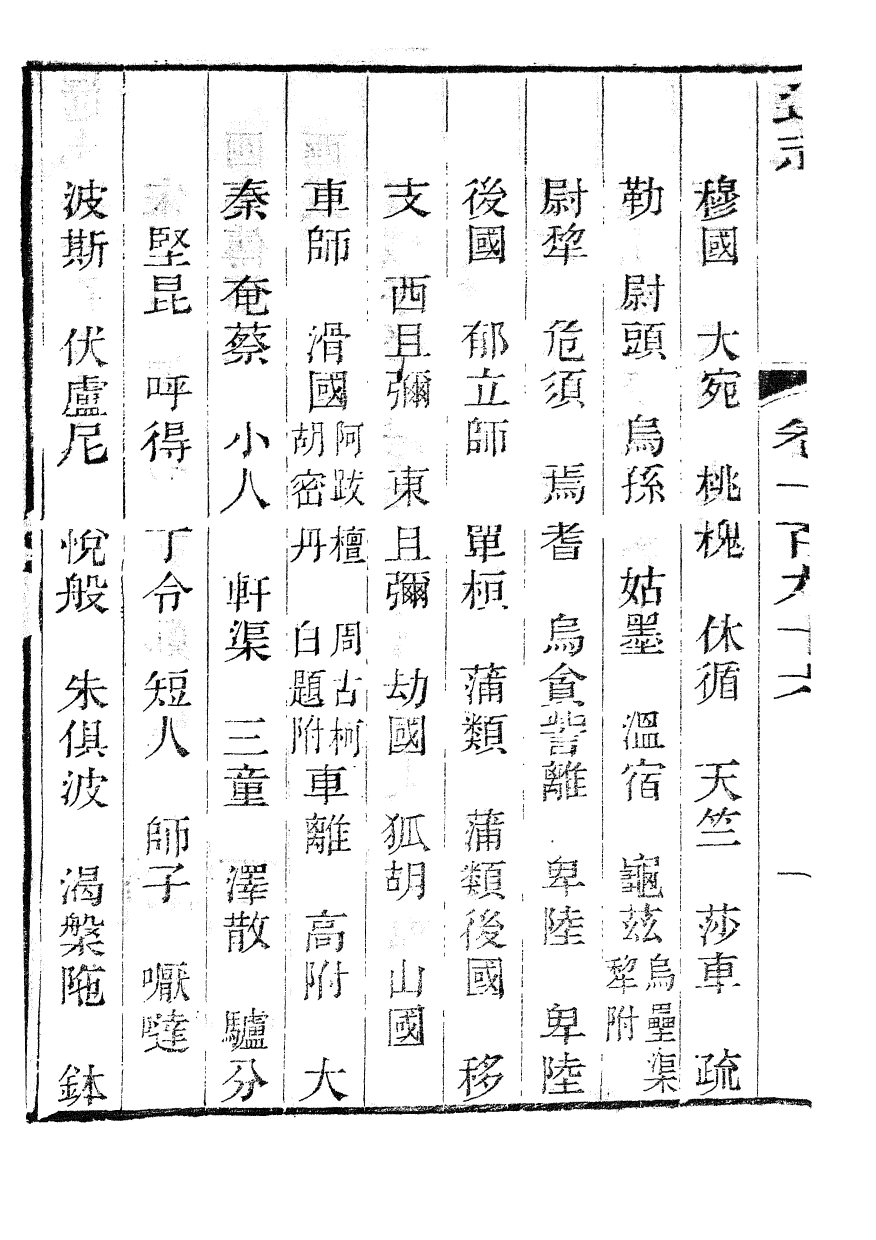 卷一百九十六
一
穆國　大宛　桃槐　休循　天竺　莎車　疏
勒　尉頭　烏孫　姑墨　溫宿　龜茲烏壘渠犂附
尉犂　危須　焉耆　烏貪訾離　卑陸　卑陸
後國　郁立師　單桓　蒲類　蒲類後國　移
支　西且彌　東且彌　劫國　狐胡　山國
車師　滑國阿跋檀　周古柯胡密丹　白題附車離　高附　大
秦　奄蔡　小人　軒渠　三童　澤散　驢分
堅昆　呼得　丁令　短人　師子　嚈噠
波斯　伏盧尼　悅般　朱俱波　渴槃陁　鉢